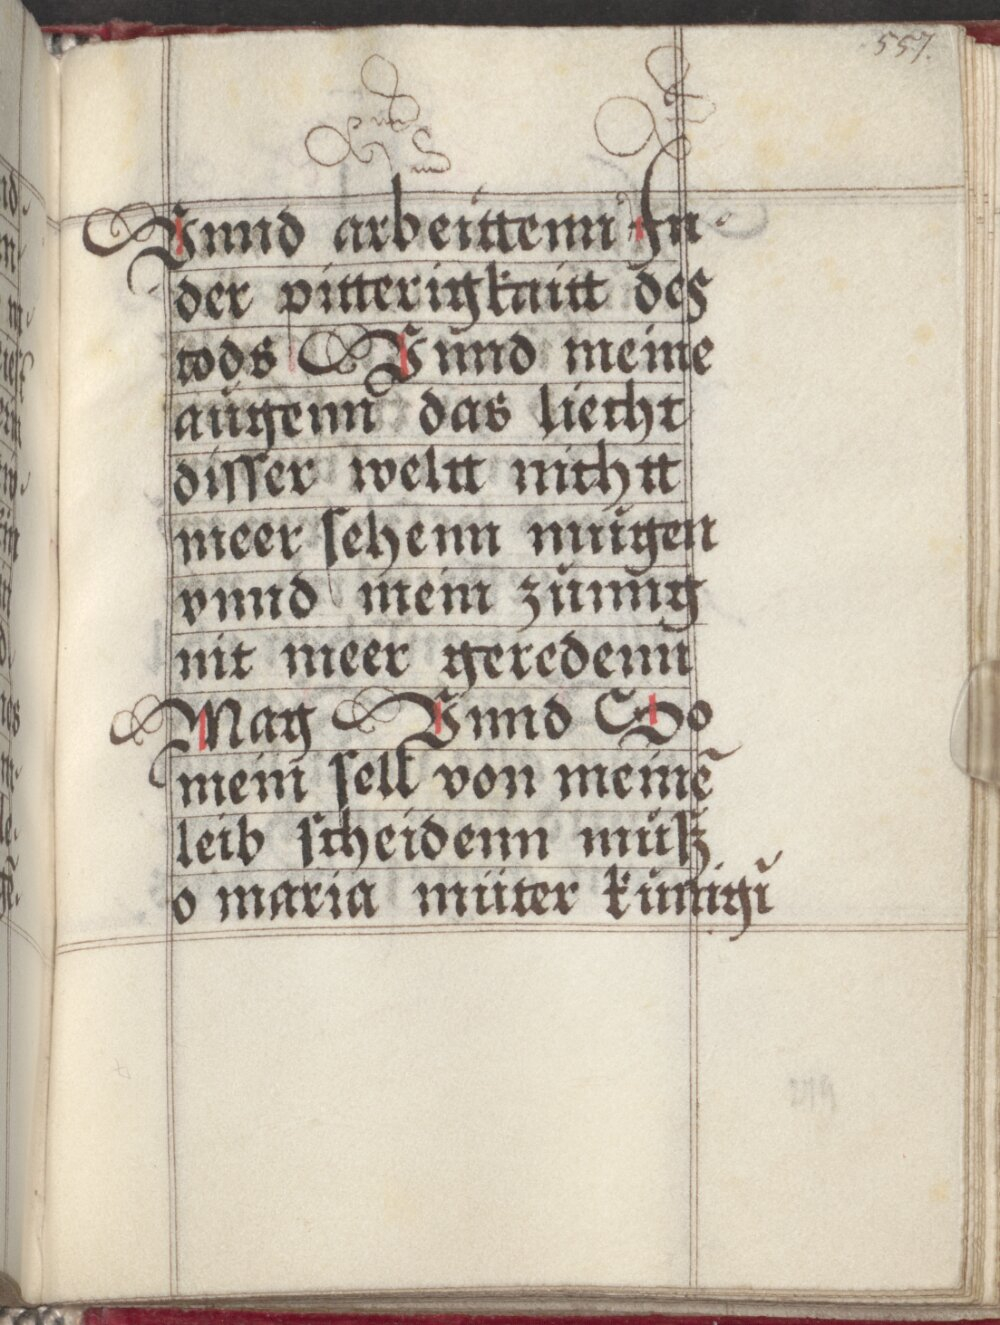 557.
Vnnd arbeittenn In
der pitterigkaitt des
tods Vnnd meine
aůgenn das liecht
disser weltt nichtt
meer sehenn můgen
vnnd mein zůnng
nit meer geredenn
Mag Vnnd So
mein sell von meinē
leib scheidenn můsz
o maria můter kůnigī
279